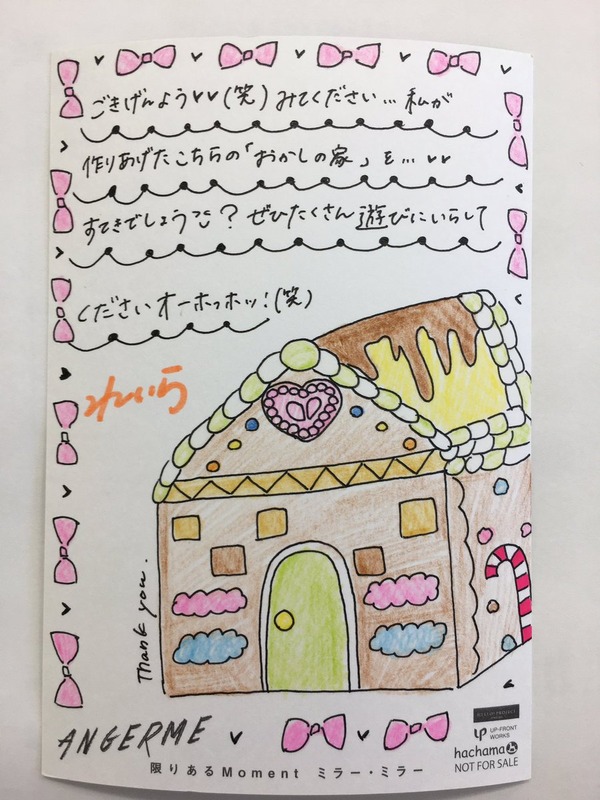 ごきげんよう♥♥(笑)みてください…私が
作りあげたこちらの「おかしの家」を…♥♥
すてきでしょう？ぜひたくさん遊びにいらして
くださいオーホっホッ!(笑)
れいら
Thank you.
ANGERME
UP-FRONT
WORKS
hachama
NOT FOR SALE
限りあるMoment ミラー・ミラー